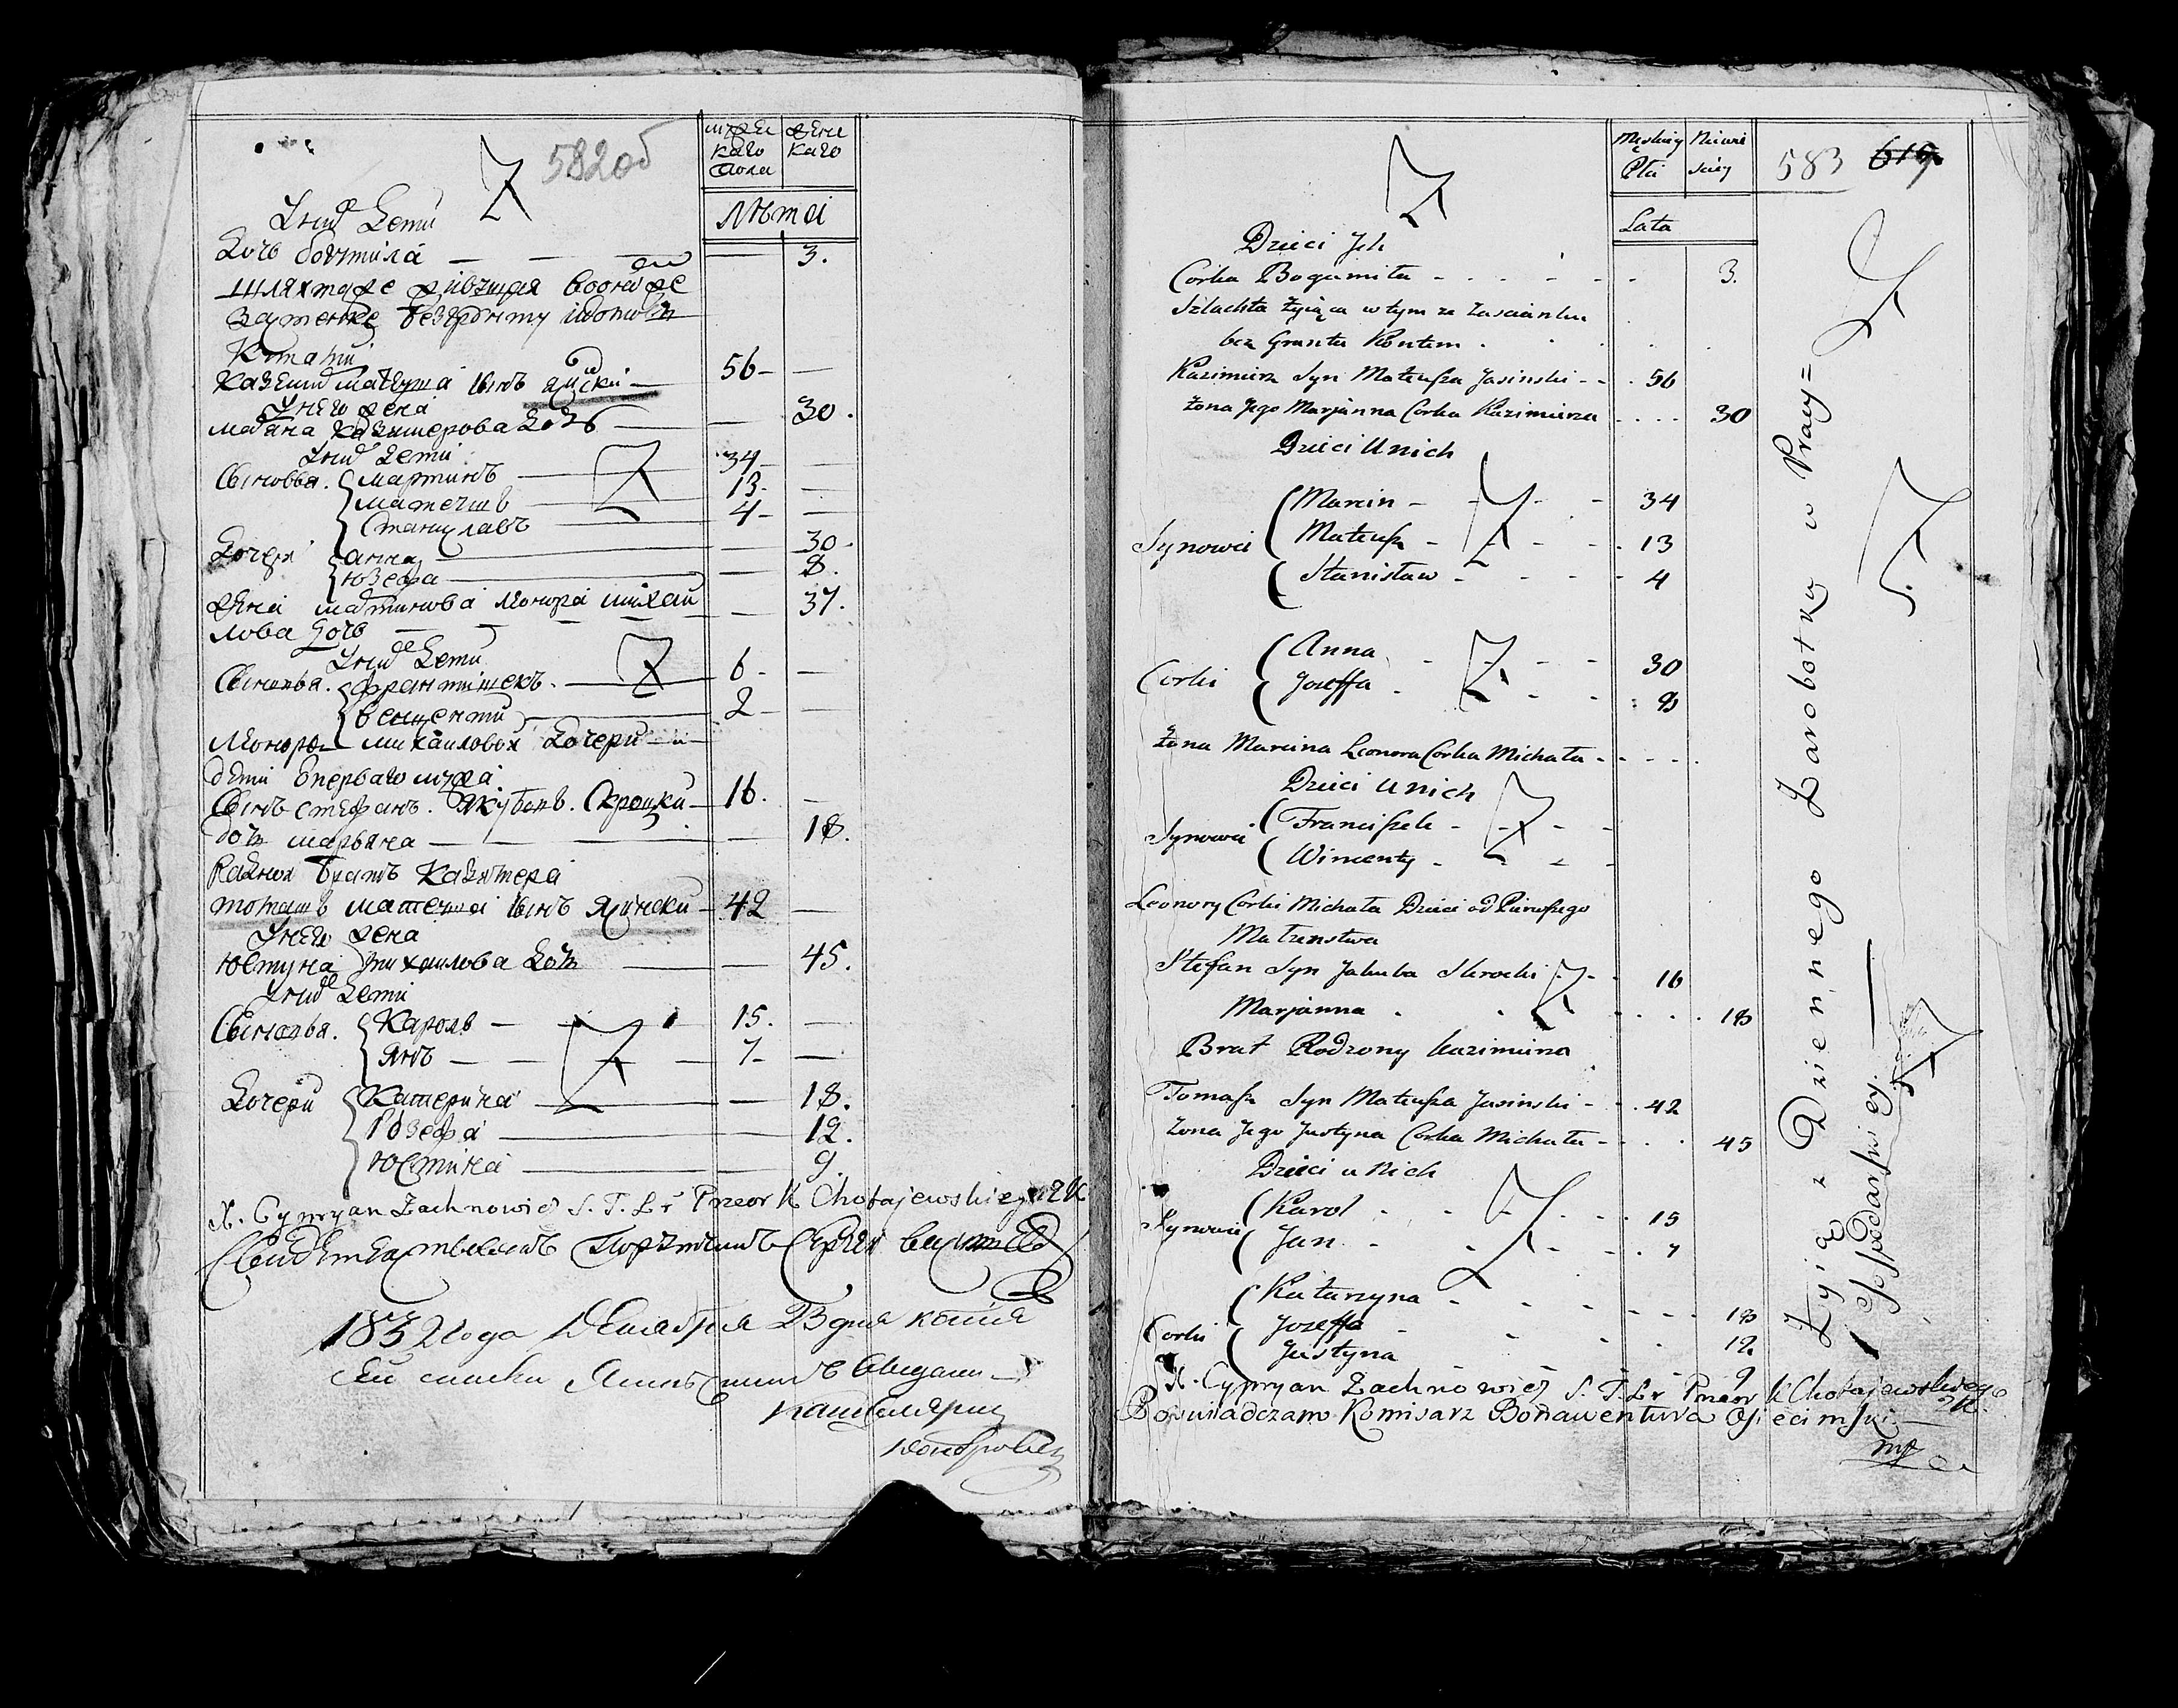 582об
Лѣта
Дочь Богумила — 3.
Казимиръ Матеуша сынъ Ясински — 56 —
У него жена
Марьяна Казимерова дочь — 30.
У нихъ дети
Сыновья. Мартинъ 34 —
Матеушъ 13 —
Станиславъ 4 —
Дочери Анна — 30
Юзефа — 8.
Жена Мартинова Леонора Михай — 37.
лова дочь
У нихъ дети
Сыновья. Франтишекъ. 6 —
Венценти 2 —
Леоноры Михайловой дочери
дети спервого мужа
Сынъ Стефанъ. Якубовъ. Скроцки 16. —
дочь Марьяна — 18.
Родной братъ Казимера
Томашъ Матеуша сынъ Ясински 42 —
У него жена
Юстына Михайлова дочь — 45.
У нихъ дети
Сыновья. Кароль 15. —
Янъ 7 —
Дочери Катерина — 18.
Юзефа — 12.
Юстина — 9.
X. Cypryan Zachnowicz S. T. Lr Przeor K Chotajewskiego
1832 года Декабря 23 дня копiя
583 619
Męskiey Płci Niewieściey
Lata
Dzieci Ich
Corka Bogumiła 3.
Szlachta żyiąca w tym ze Zascianku
bez Gruntu Kontem
Kazimierz Syn Mateusza Jasinski 56
Żona Jego Marjanna Corka Kazimierza 30
Dzieci U nich
Synowie Marcin 34
Mateusz 13
Stanisław 4
Corki Anna 30
Jozeffa 8
Żona Marcina Leonora Corka Michała
Dzieci u nich
Synowie Franciszek
Wincenty
Leonory Corki Michała Dzieci od Pierwszego
Małzenstwa
Stefan Syn Jakuba Skrocki 16
Marjanna 18
Brat Rodzony Kazimierza
Tomasz Syn Mateusza Jasinski 42
Żona Jego Justyna Corka Michała 45
Dzieci u nich
Synowie Karol 15
Jan 7
Corki Katarzyna 18
Jozeffa 12
Justyna 9
X. Cypryan Zachnowicz S. T. Lr Przeor K Chotajewskiego
Poświadczam Komisarz Bonawentura Osiecimski
mp
Żyią z Dziennego Zarobotku w Pracy =
Gospodarskiey.